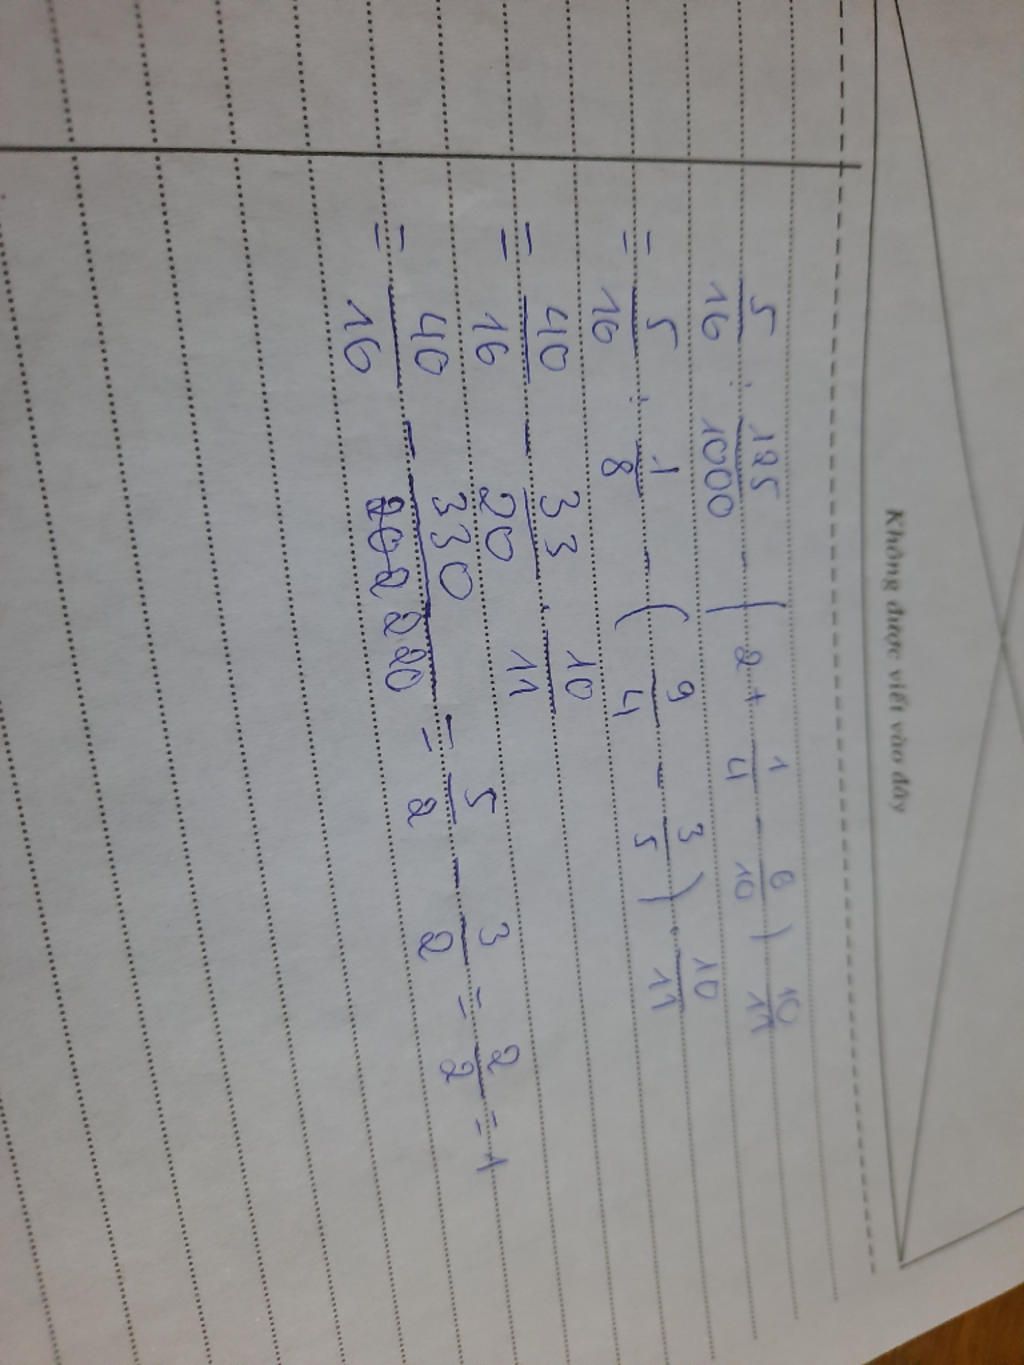 Không được viết vào đây
5/16 : 125/1000 - (2 + 1/4 - 6/10) 10/11
= 5/16 : 1/8 - (9/4 - 3/5) . 10/11
= 40/16 - 33/20 . 10/11
= 40/16 - 330/220 = 5/2 - 3/2 = 2/2 = 1